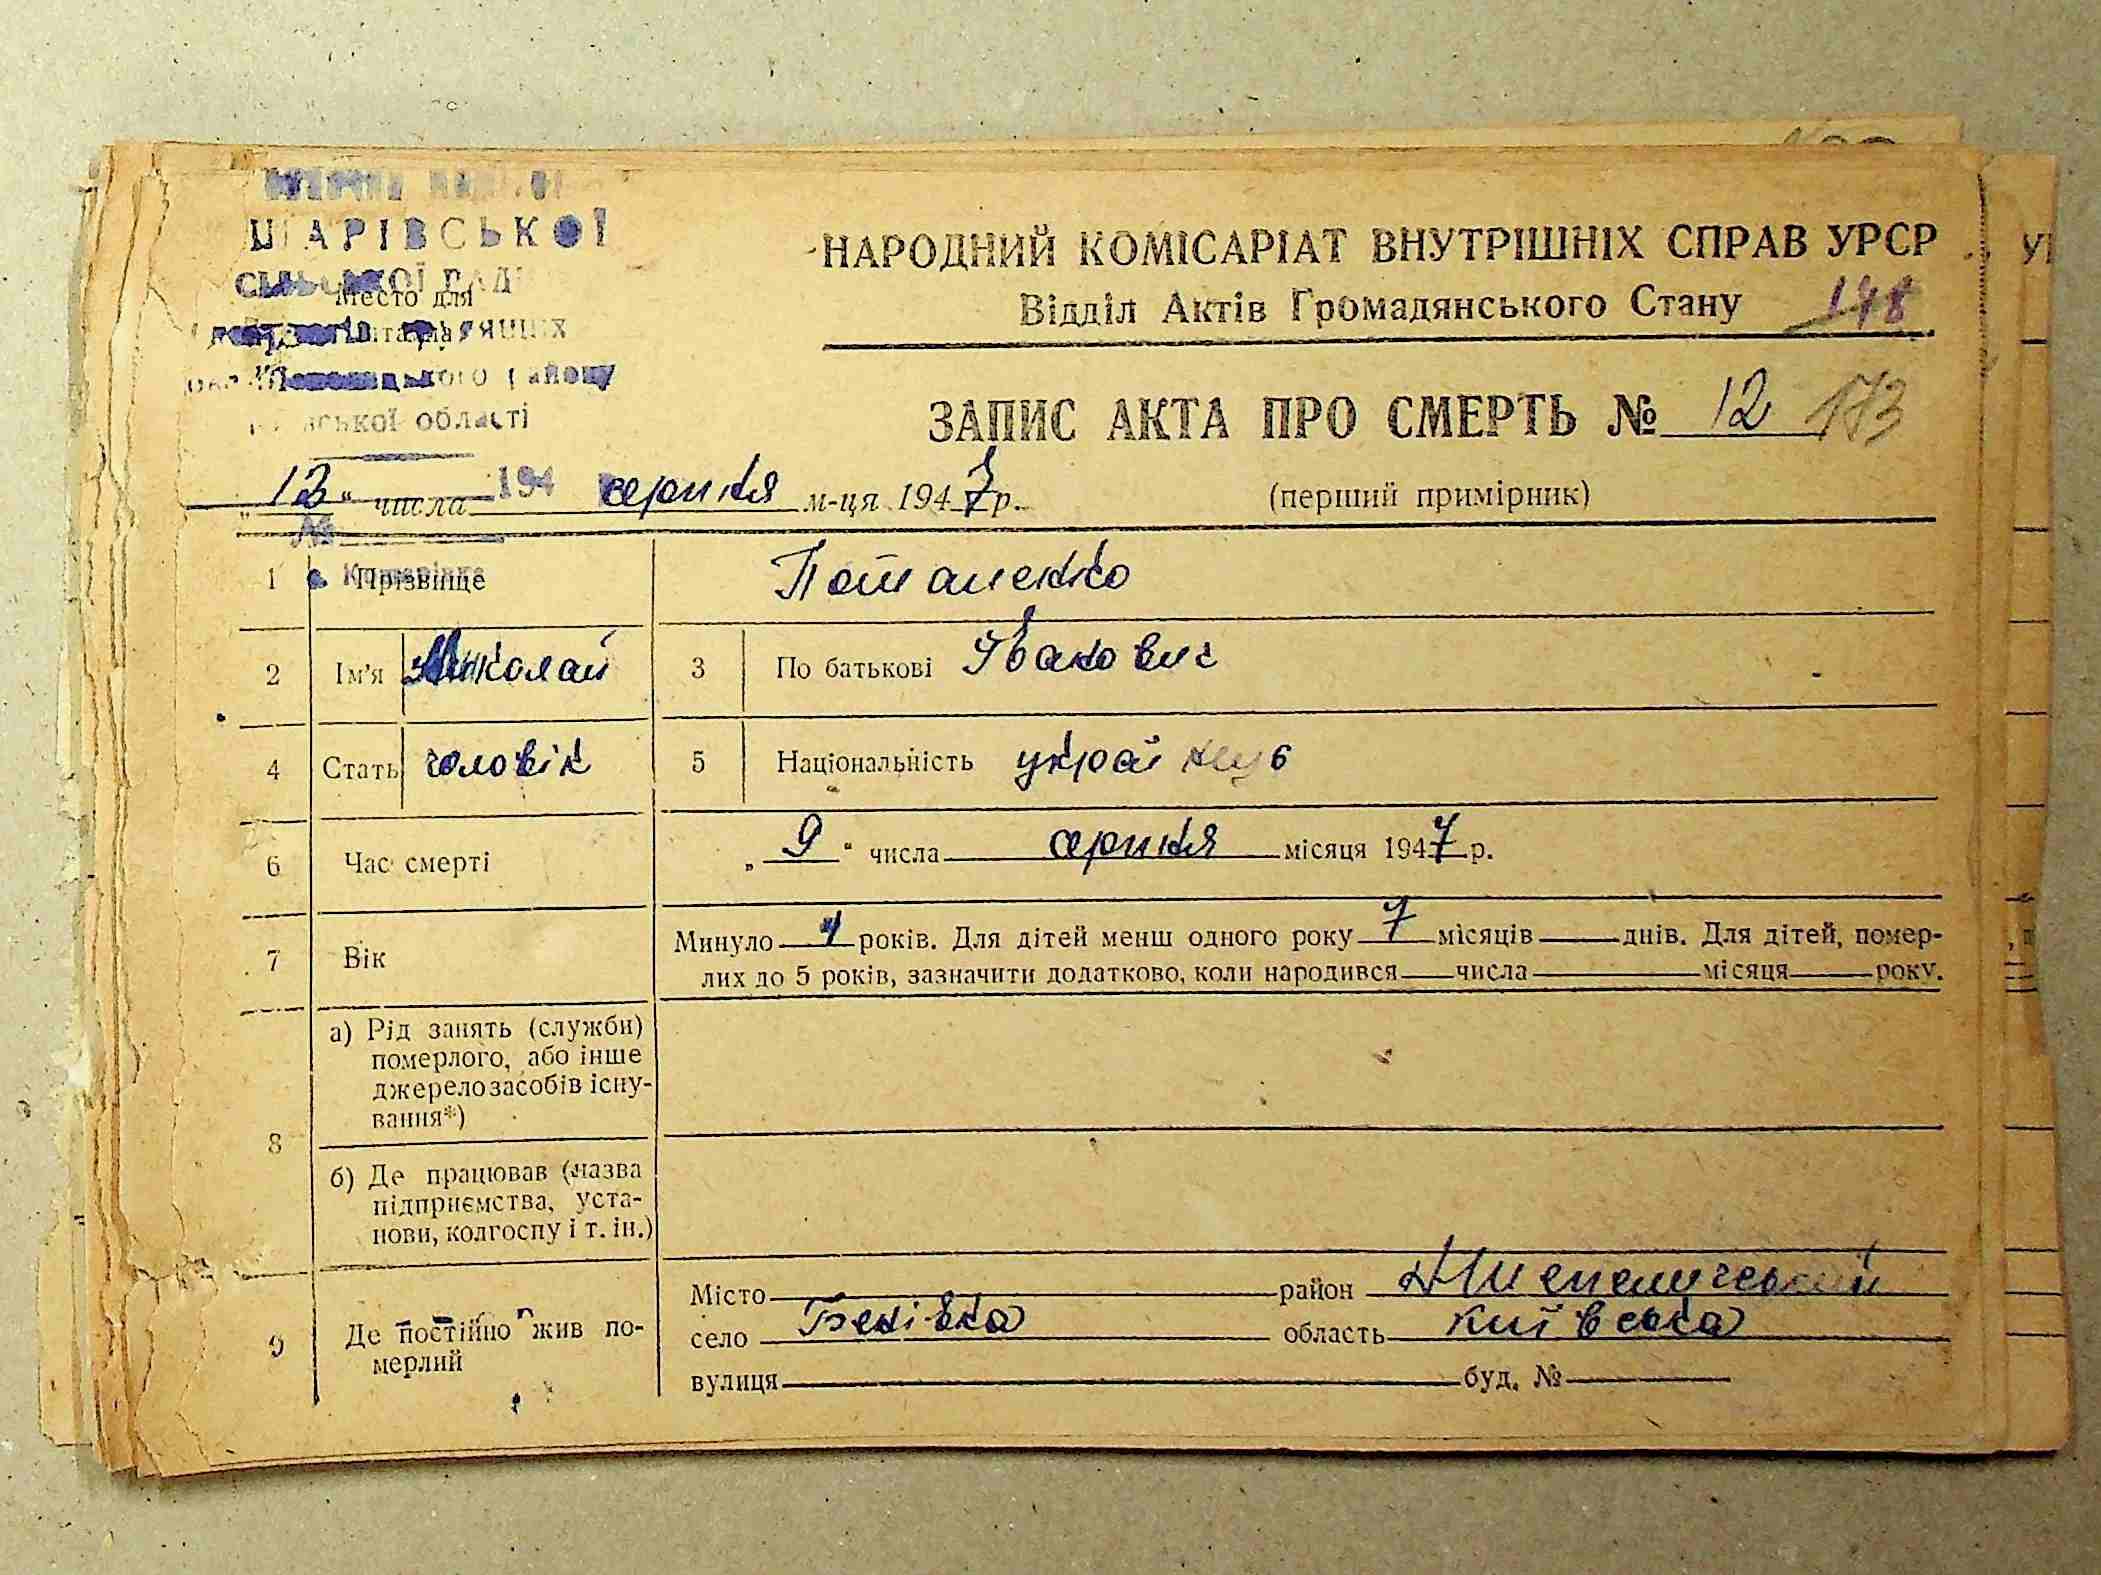 ШАРІВСЬКОЇ
СІЛЬСЬКОЇ РАДИ
Место для
області
НАРОДНИЙ КОМІСАРІАТ ВНУТРІШНІХ СПРАВ УРСР
Відділ Актів Громадянського Стану 148
ЗАПИС АКТА ПРО СМЕРТЬ № 12 173
(перший примірник)
числа 194 серпня м-ця 1947 р.
1 Прізвище Потапенко
2 Ім'я Миколай 3 По батькові Іванович
4 Стать чоловік 5 Національність
6 Час смерті „9“ числа серпня місяця 1947 р.
7 Вік Минуло років. Для дітей менш одного року 7 місяців днів. Для дітей, помер-
лих до 5 років, зазначити додатково, коли народився числа місяця року.
8 а) Рід занять (служби)
померлого, або інше
джерело засобів існу-
вання*)
б) Де працював (назва
підприємства, уста-
нови, колгоспу і т. ін.)
9 Де постійно жив по-
мерлий
Місто район
село Бенівка область Київська
вулиця буд. №